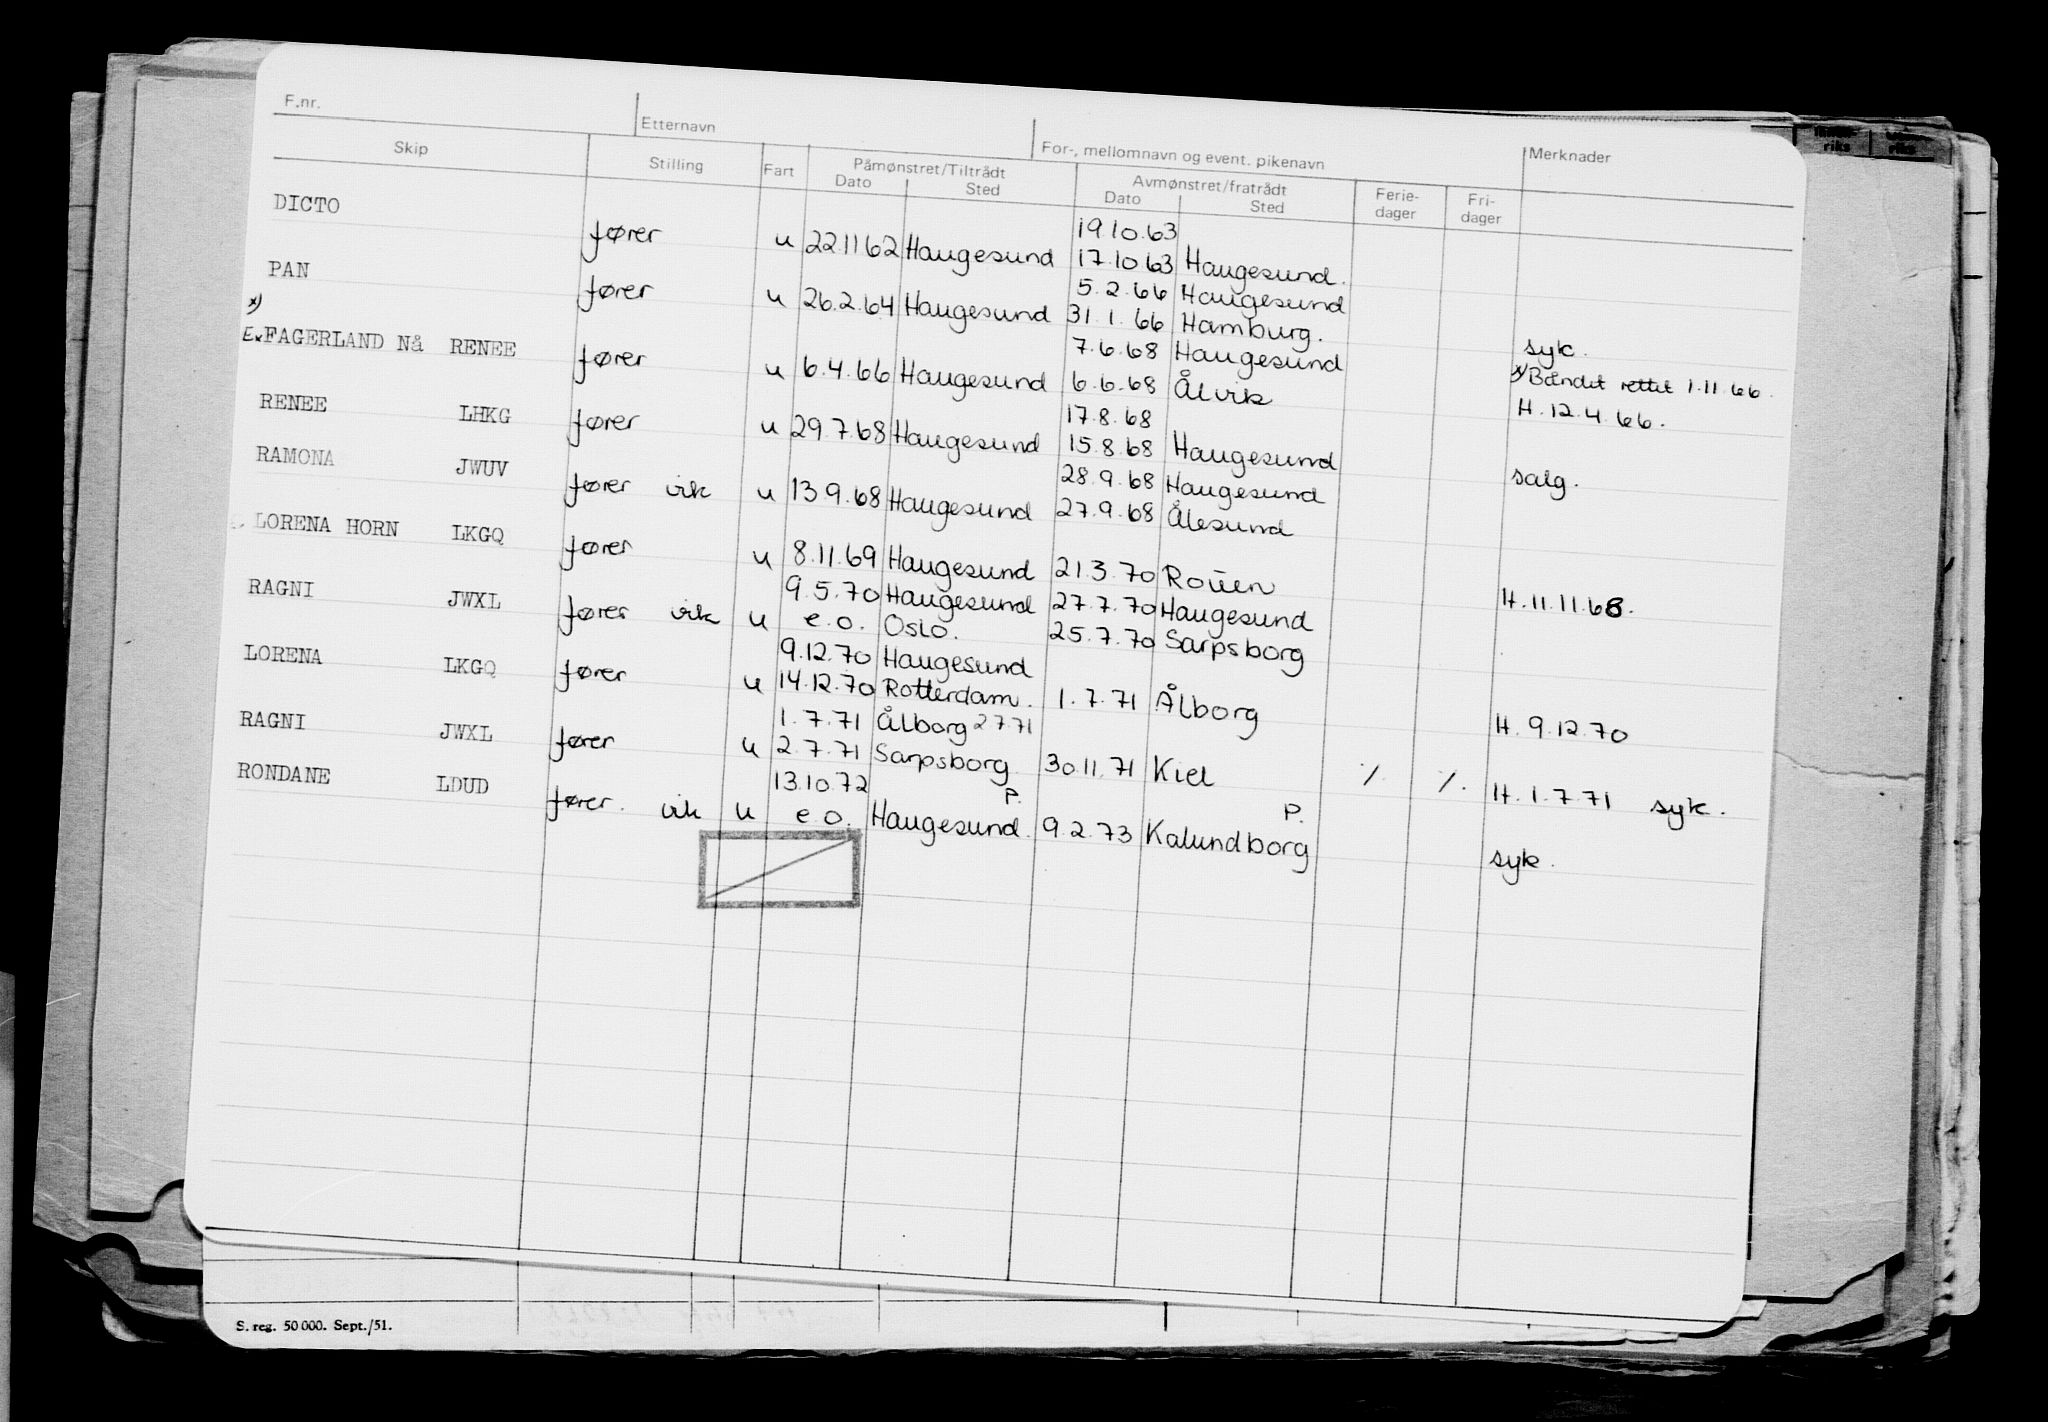 F.nr.
Etternavn
For-, mellomnavn og event. pikenavn
Skip Stilling Fart Påmønstret/Tiltrådt Avmønstret/fratrådt Ferie- Fri- Merknader
Dato Sted Dato Sted dager dager
DICTO 19.10.63
fører u 22.11 62 Haugesund 17.10 63 Haugesund.
PAN 5.2.66 Haugesund
fører u 26.2.64 Haugesund 31.1.66 Hamburg. syk.
x)
Ex FAGERLAND Nå RENEE 7.6.68 Haugesund x) Båndet rettet 1.11.66.
fører u 6.4.66 Haugesund 6.6.68 Ålvik H. 12.4.66.
RENEE LHKG 17.8.68
fører u 29.7.68 Haugesund 15.8.68 Haugesund salg.
RAMONA JWUV 28.9.68 Haugesund
fører vik u 13.9.68 Haugesund 27.9.68 Ålesund
LORENA HORN LKGQ
fører u 8.11.69 Haugesund 21.3.70 Rouen H.11.11.68.
RAGNI JWXL 9.5.70 Haugesund 27.7.70 Haugesund
fører vik u e.o. Oslo. 25.7.70 Sarpsborg
LORENA LKGQ 9.12.70 Haugesund
fører u 14.12.70 Rotterdam. 1.7.71 Ålborg H. 9.12.70
RAGNI JWXL 1.7.71 Ålborg 2 7 71
fører u 2.7.71 Sarpsborg 30.11.71 Kiel ./. ./. H.1.7.71 syk.
RONDANE LDUD 13.10.72 P. P.
fører. vik u e.o. Haugesund. 9.2.73 Kalundborg syk.
S. reg. 50 000. Sept./51.